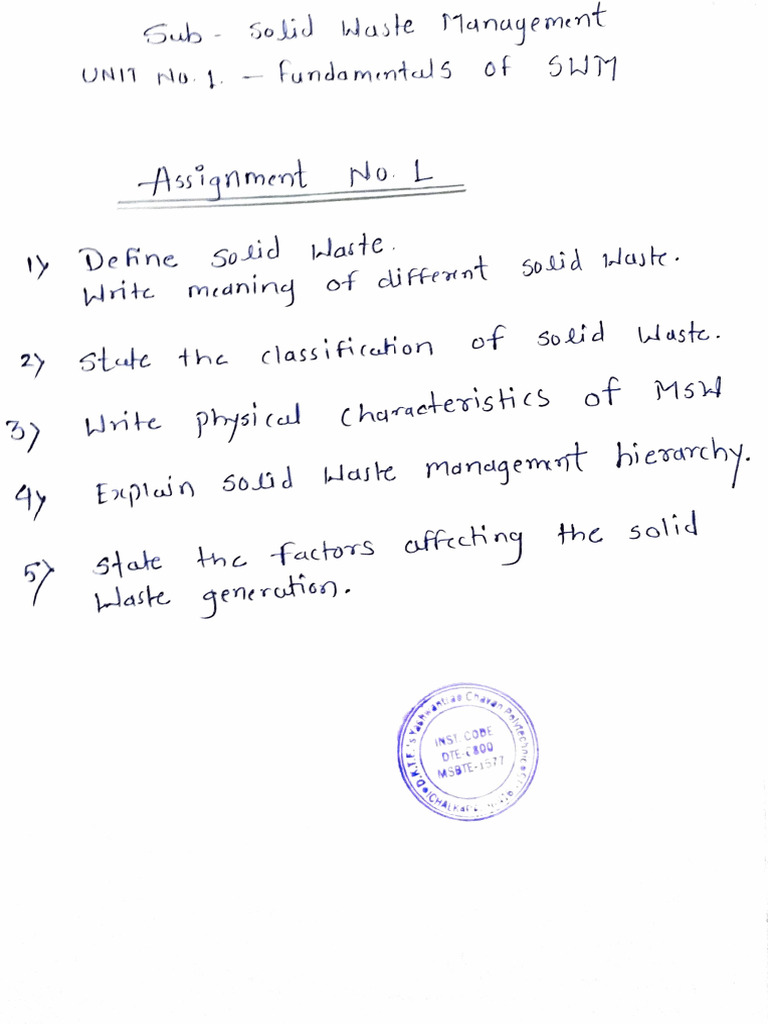 Sub - Solid Waste Management
UNIT No. 1. - Fundamentals of SWM
Assignment No. 1
1) Define Solid Waste.
Write meaning of different solid waste.
2) State the classification of solid waste.
3) Write physical characteristics of MSW
4) Explain solid waste management hierarchy.
5) State the factors affecting the solid
waste generation.
D.K.T.E.'s Yashwantrao Chavan Polytechnic
INST. CODE
DTE-
MSBTE-1577